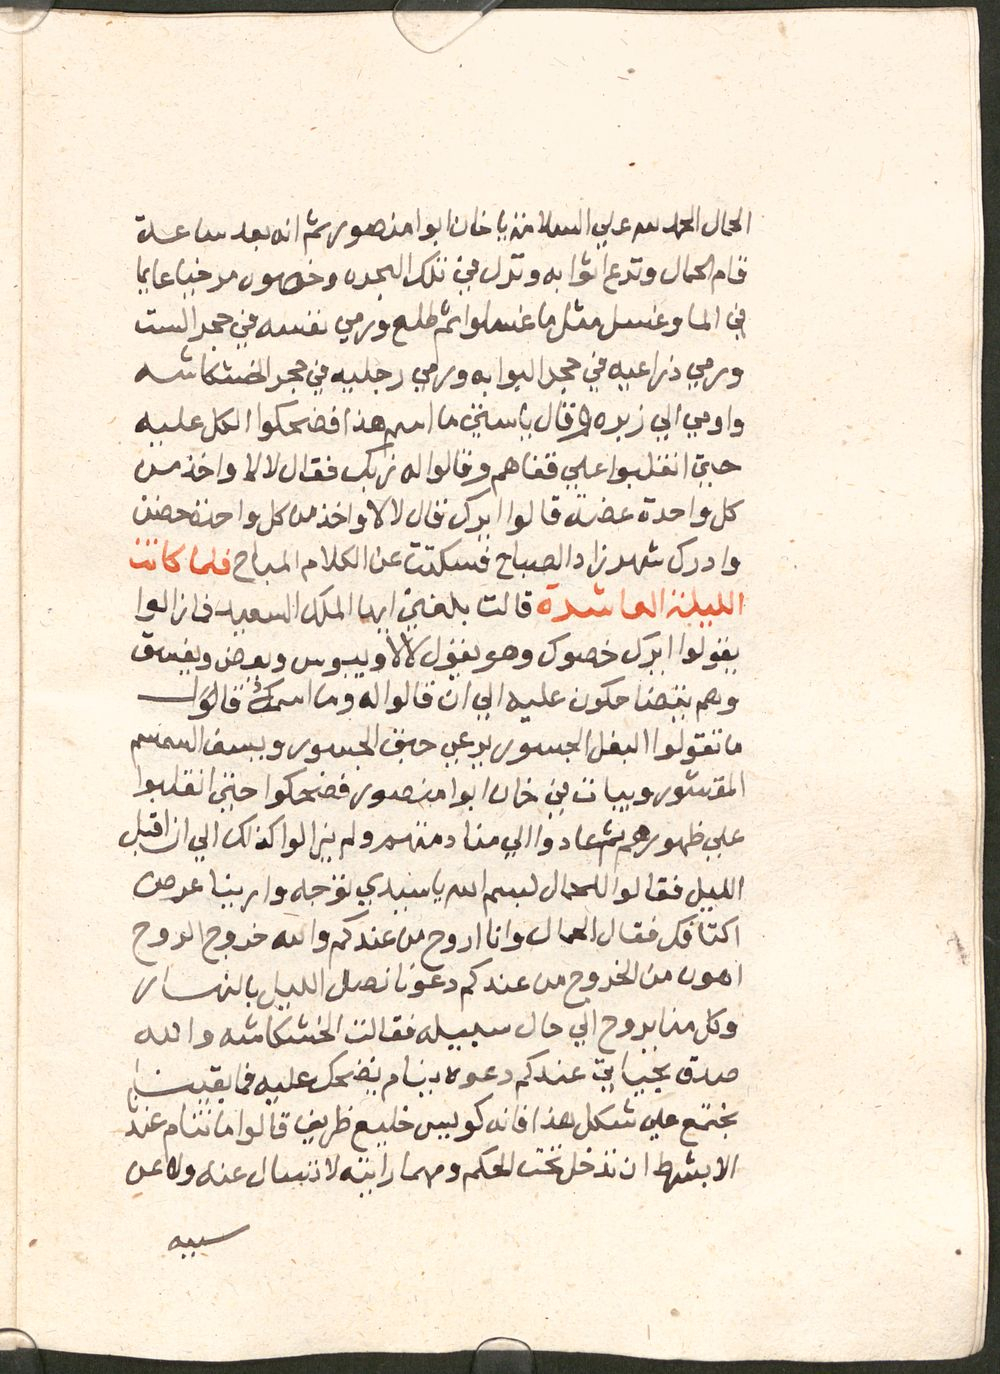 الحمال الحمد لله علي السلامة يا خان ابوا منصور ثم انه بعد ساعة
قام الحمال وقلع اثوابه ونزل في تلك البحره وخصوه مرخيا عايما
في الما وغسل مثل ما غسلوا ثم طلع ورمي نفسه في حجر الست
ورمي ذراعيه في حجر البوابه ورمي رجليه في حجر الخشكاشه
واومي الي زبره وقال ياستي ما اسم هذا فضحكوا الكل عليه
حتي انقلبوا علي قفاهم وقالوا له زبك فقال لا لا واخذ من
كل واحدة عضة قالوا ايرك قال لا لا واخذ من كل واحدة حضن
وادرك شهرزاد الصباح فسكتت عن الكلام المباح فلما كانت
الليلة العاشرة قالت بلغني ايها الملك السعيد فما زالوا
يقولوا ايرك خصوك وهو يقول لا لا ويبوس ويعض
وهم يتضاحكون عليه الي ان قالوا له وما اسمك قال
ما تقولوا البغل الجسور يرعي حبق الجسور ويسف السمسم
المقشور ويبات في خان ابوا منصور فضحكوا حتي انقلبوا
علي ظهورهم ثم عادوا الي منادمتهم ولم يزالوا كذلك الي ان اقبل
الليل فقالوا للحمال بسم الله يا سيدي توجه وارينا عرض
اكتافك فقال الحمال وانا اروح من عندكم والله خروج الروح
اهون من الخروج من عندكم دعونا نصل الليل بالنهار
وكل منا يروح الي حال سبيله فقالت الخشكاشه والله
صدق بحياتي عندكم دعوه ينام نضحك عليه فما بقينا
نجتمع علي شكل هذا فانه كويس خليع ظريف قالوا ما تنام عندنا
الا بشرط ان تدخل تحت الحكم ومهما رايته لا تسال عنه ولا عن
سببه